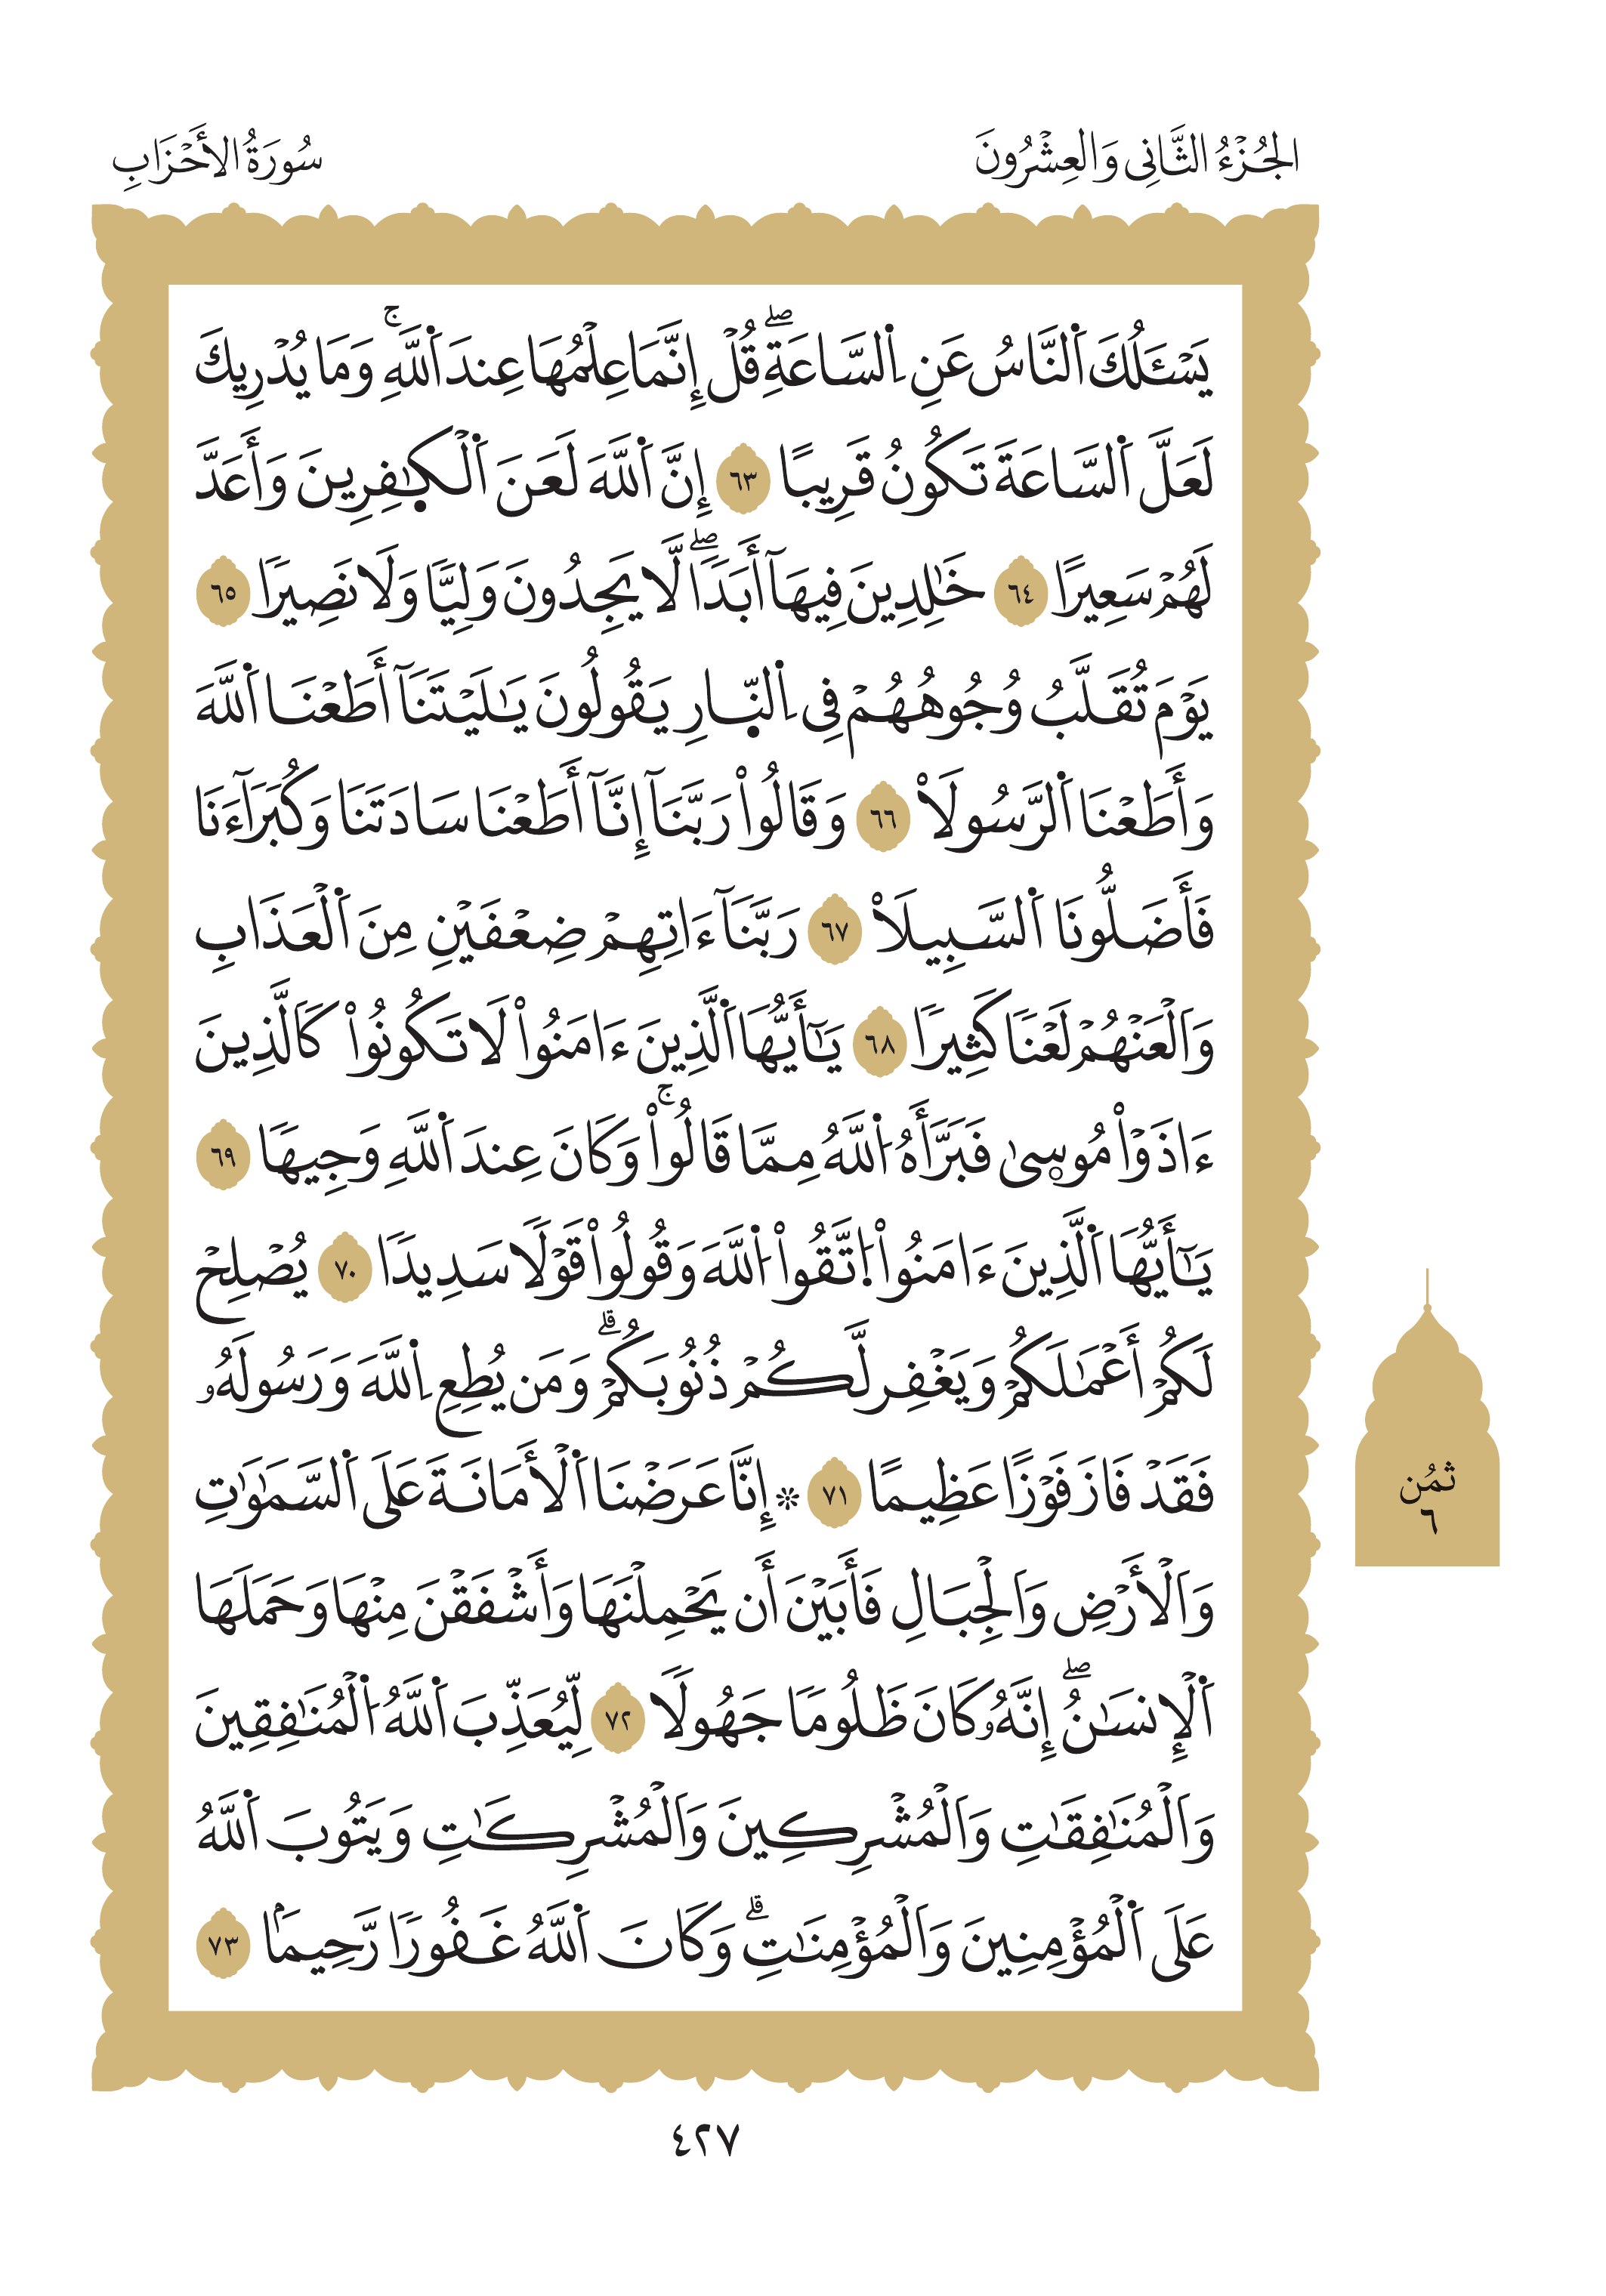 الجُزْءُ الثَّانِى وَالعِشْرُونَ
سُورَةُ الأَحْزَابِ
يَسْـَٔلُكَ اَ۬لنَّاسُ عَنِ اِ۬لسَّاعَةِۖ قُلْ إِنَّمَا عِلْمُهَا عِندَ اَ۬للَّهِۚ وَمَا يُدْرِيكَ
لَعَلَّ اَ۬لسَّاعَةَ تَكُونُ قَرِيبًا ٦٣ إِنَّ اَ۬للَّهَ لَعَنَ اَ۬لْكٰٜفِرِينَ وَأَعَدَّ
لَهُمْ سَعِيرًا ٦٤ خَٰلِدِينَ فِيهَآ أَبَدٗاۖ لَّا يَجِدُونَ وَلِيّٗا وَلَا نَصِيرٗا ٦٥
يَوْمَ تُقَلَّبُ وُجُوهُهُمْ فِى اِ۬لنّٜارِ يَقُولُونَ يَٰلَيْتَنَآ أَطَعْنَا اَ۬للَّهَ
وَأَطَعْنَا اَ۬لرَّسُولَاْ ٦٦ وَقَالُواْ رَبَّنَآ إِنَّآ أَطَعْنَا سَادَتَنَا وَكُبَرَآءَنَا
فَأَضَلُّونَا اَ۬لسَّبِيلَاْ ٦٧ رَبَّنَآ ءَاتِهِمْ ضِعْفَيْنِ مِنَ اَ۬لْعَذَابِ
وَالْعَنْهُمْ لَعْنٗا كَثِيرٗا ٦٨ يَٰٓأَيُّهَا اَ۬لَّذِينَ ءَامَنُواْ لَا تَكُونُواْ كَالَّذِينَ
ءَاذَوْاْ مُوسٜىٰ فَبَرَّأَهُ اُ۬للَّهُ مِمَّا قَالُواْۚ وَكَانَ عِندَ اَ۬للَّهِ وَجِيهٗا ٦٩
يَٰٓأَيُّهَا اَ۬لَّذِينَ ءَامَنُواْ اُ۪تَّقُواْ اُ۬للَّهَ وَقُولُواْ قَوْلٗا سَدِيدٗا ٧٠ يُصْلِحْ
لَكُمْ أَعْمَٰلَكُمْ وَيَغْفِر لَّكُمْ ذُنُوبَكُمْۗ وَمَن يُطِعِ اِ۬للَّهَ وَرَسُولَهُۥ
فَقَدْ فَازَ فَوْزًا عَظِيمًا ٧١ ۞ إِنَّا عَرَضْنَا اَ۬لْأَمَانَةَ عَلَى اَ۬لسَّمَٰوَٰتِ
وَالْأَرْضِ وَالْجِبَالِ فَأَبَيْنَ أَن يَحْمِلْنَهَا وَأَشْفَقْنَ مِنْهَا وَحَمَلَهَا
اَ۬لْإِنسَٰنُۖ إِنَّهُۥ كَانَ ظَلُومٗا جَهُولٗا ٧٢ لِّيُعَذِّبَ اَ۬للَّهُ اُ۬لْمُنَٰفِقِينَ
وَالْمُنَٰفِقَٰتِ وَالْمُشْرِكِينَ وَالْمُشْرِكَٰتِ وَيَتُوبَ اَ۬للَّهُ
عَلَى اَ۬لْمُؤْمِنِينَ وَالْمُؤْمِنَٰتِۗ وَكَانَ اَ۬للَّهُ غَفُورٗا رَّحِيمَۢا ٧٣
ثُمُن
٦
٤٢٧